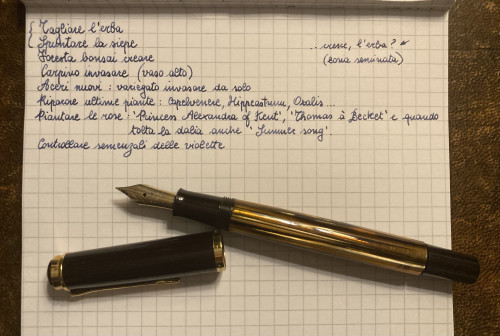 Tagliare l'erba
Spuntare la siepe
...cresce, l'erba?
Foresta bonsai creare
(zona seminata)
Carpino invasare (vaso alto)
Aceri nuovi: variegato invasare da solo
Riparare ultime piante: Capelvenere, Hippeastrum, Oxalis...
Piantare le rose: 'Princess Alexandra of Kent', 'Thomas à Becket' e quando
tolta la dalia anche 'Summer song'.
Controllare semenzali delle violette